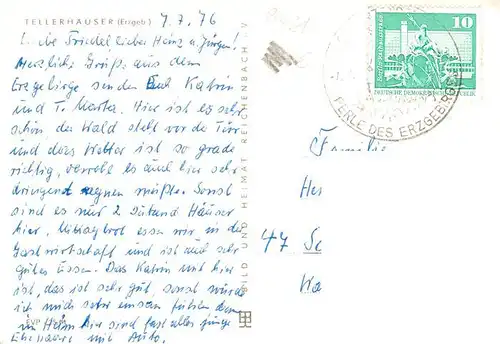 TELLERHÄUSER (Erzgeb.)
7.7.76
Liebe Friedel lieber Heinz u. Jürgen!
Herzliche Grüße aus dem
Erzgebirge senden Katrin
und T. Marta. Hier ist es sehr
schön der Wald steht vor der Tür
und das Wetter ist so grade
richtig, es auch hier sehr
dringend regnen müßte. Sonst
sind es nur 2 Dutzend Häuser
hier, Mittagbrot essen wir in der
Gastwirtschaft und ist auch sehr
gutes Essen. Das Katrin mit hier
ist, das ist sehr gut, sonst würde
ich mich sehr einsam fühlen denn
im Heim hier sind fast alles junge
Eheleute mit Auto.
BILD UND HEIMAT REICHENBACH V
EVP
10
DEUTSCHE DEMOKRATISCHE REPUBLIK
PERLE DES ERZGEBIRGES
Familie
Her
47 Se
Wa